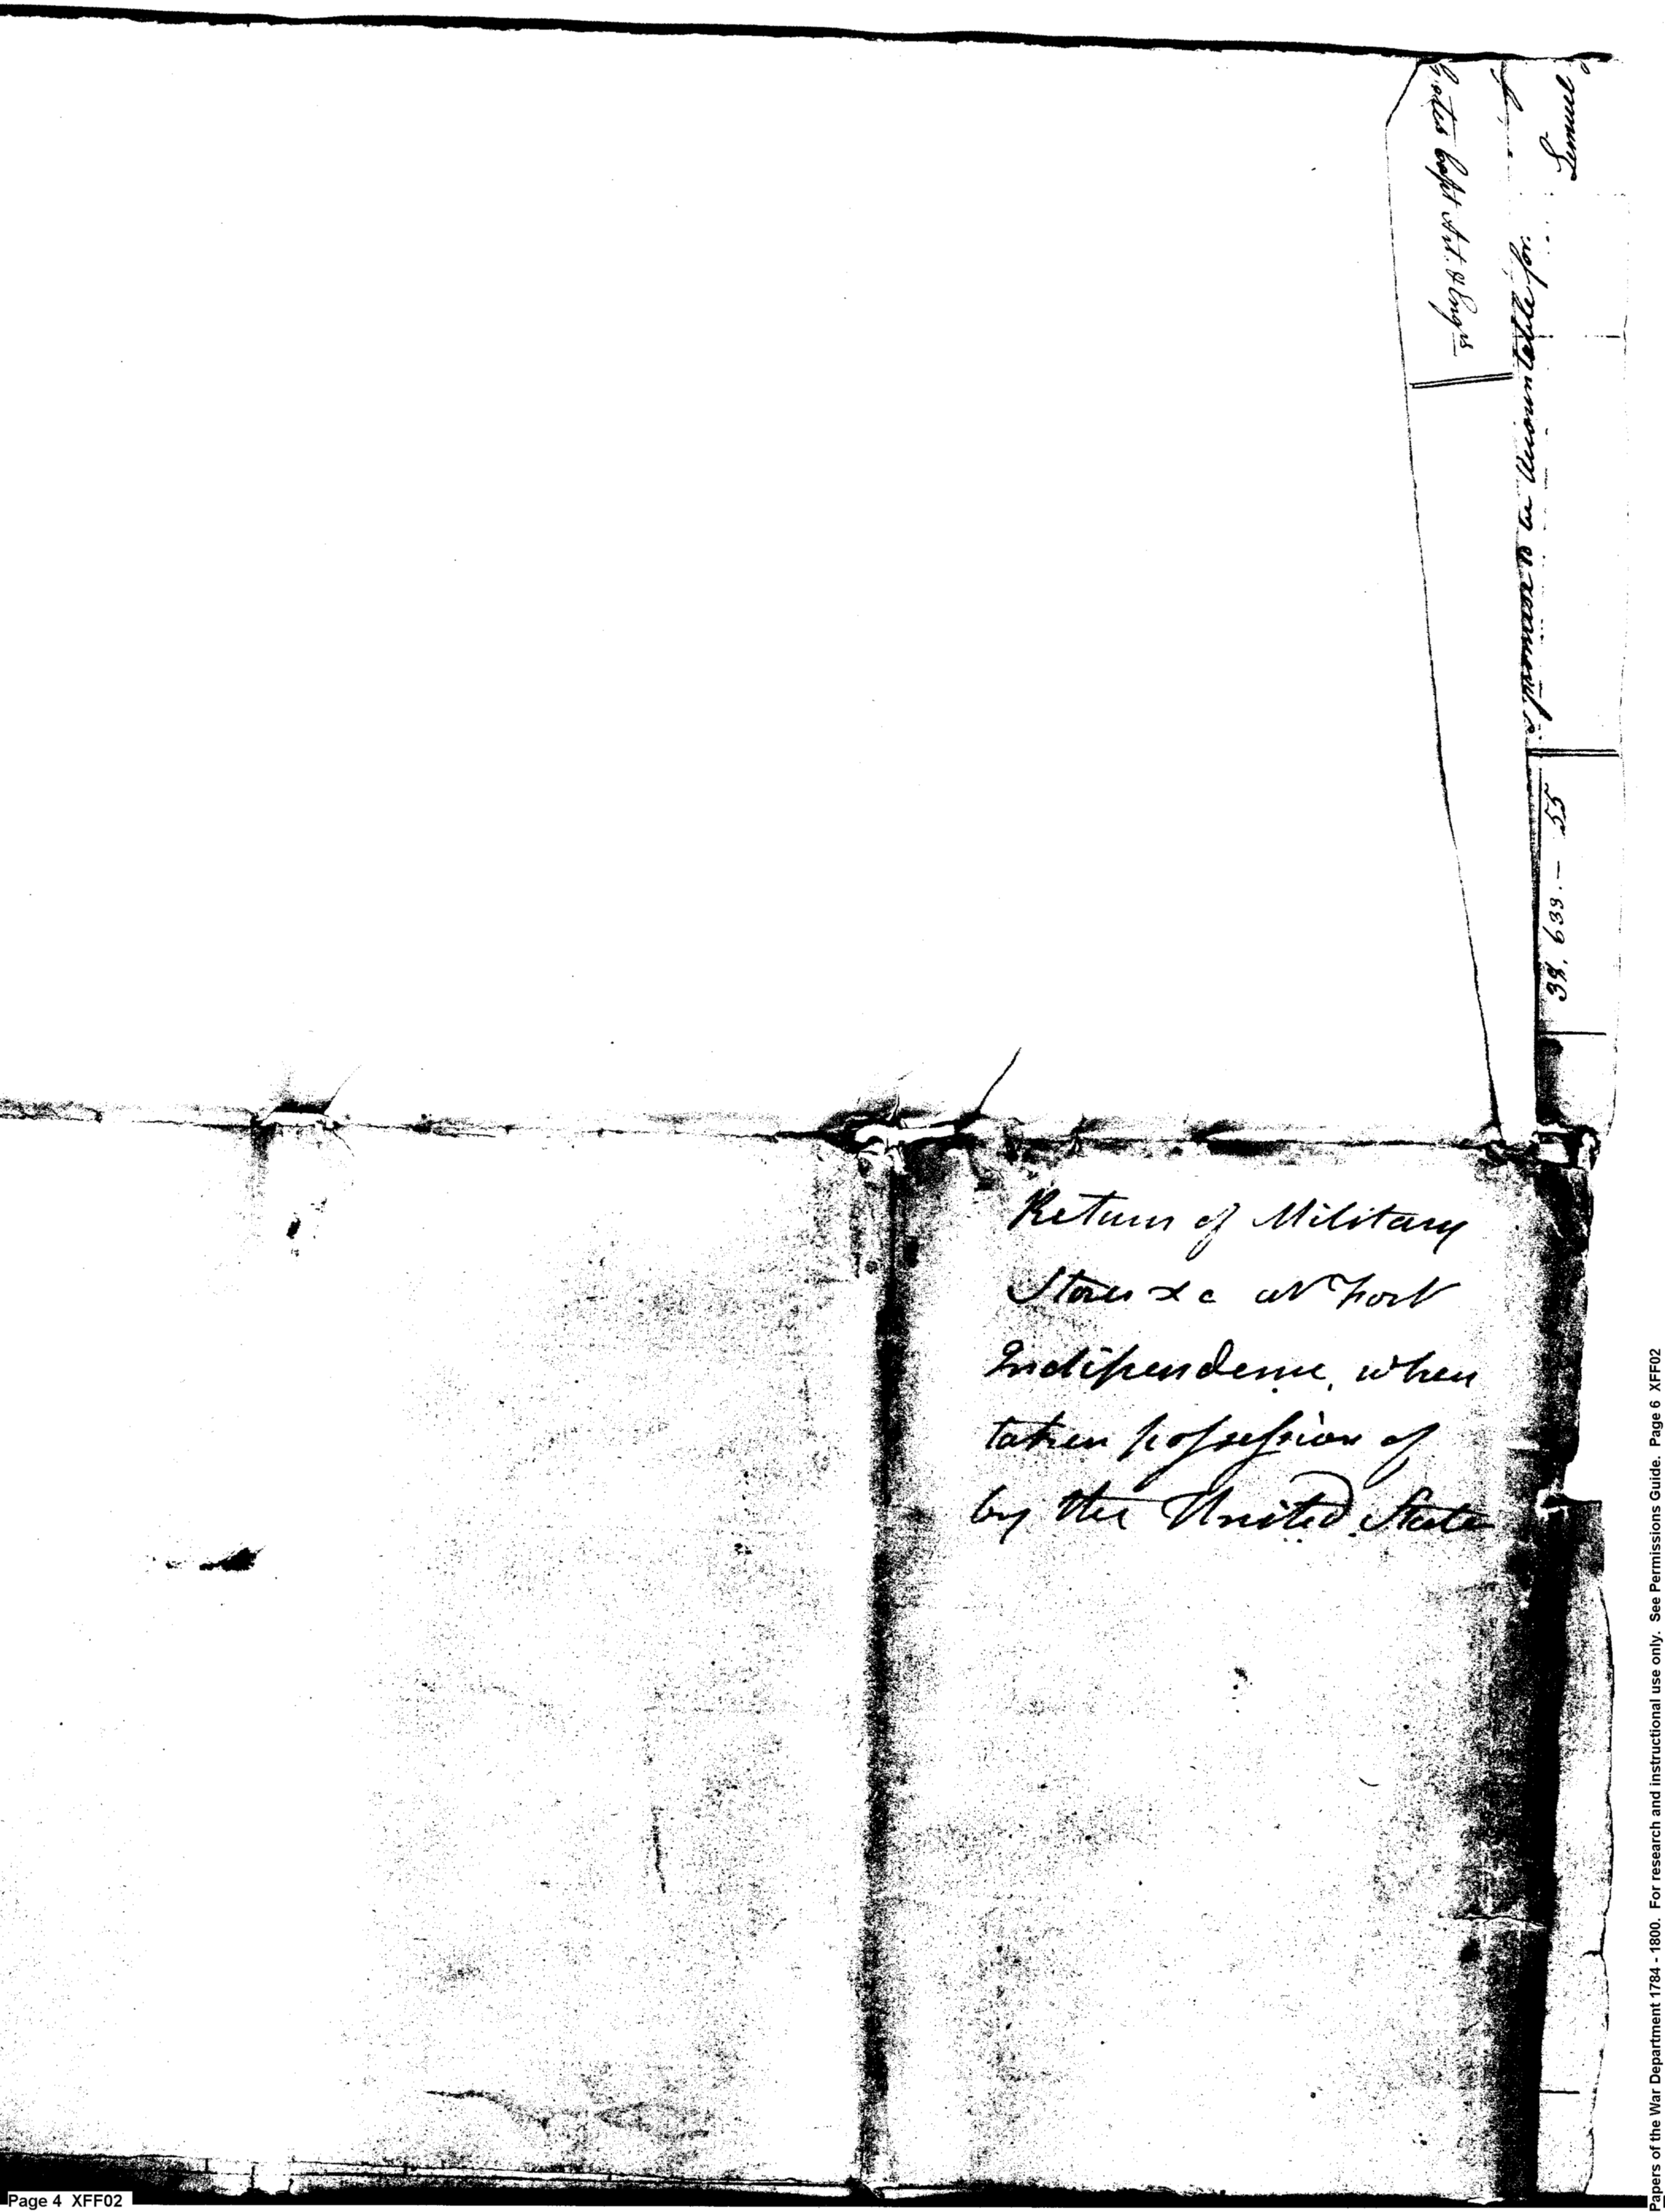 Lemuel
Gates Capt Art. & Engrs
to be Accountable for
38,633.—55
Return of Military
Stores &c at Fort
Independence, when
taken possession of
by the United State
Papers of the War Department 1784 - 1800. For research and instructional use only. See Permissions Guide. Page 6 XFF02
Page 4 XFF02